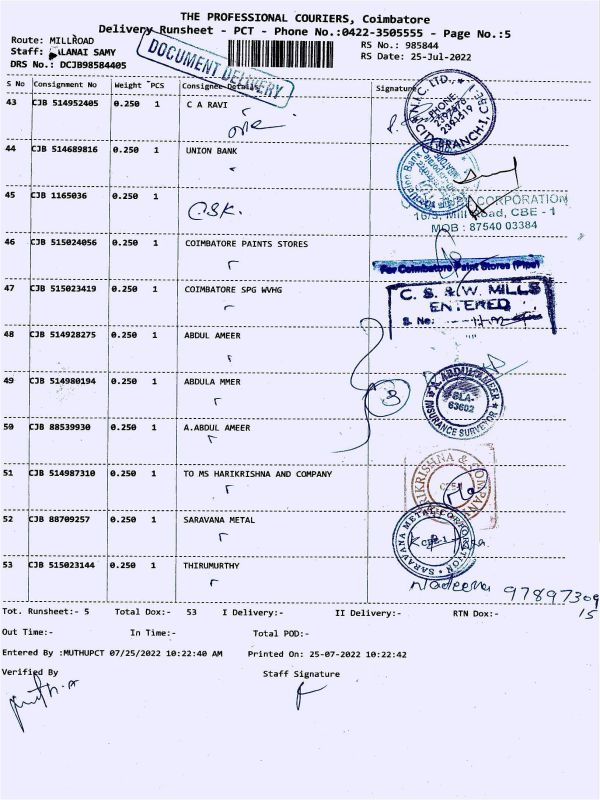 THE PROFESSIONAL COURIERS, Coimbatore
Delivery Runsheet - PCT - Phone No.:0422-3505555 - Page No.:5
Route: MILLROAD
Staff: ALANAI SAMY
DRS No.: DCJB98584405
DOCUMENT DELIVERY
RS No.: 985844
RS Date: 25-Jul-2022
S No Consignment No Weight PCS Consignee Details Signature
43 CJB 514952405 0.250 1 C A RAVI
N.I.C. LTD.,
PHONE:
2391519
CITY BRANCH-1, CBE
44 CJB 514689816 0.250 1 UNION BANK
45 CJB 1165036 0.250 1
CORPORATION
Mill Road, CBE - 1
MOB : 87540 03384
46 CJB 515024056 0.250 1 COIMBATORE PAINTS STORES
For Coimbatore Paint Stores (Pine)
47 CJB 515023419 0.250 1 COIMBATORE SPG WVHG
C. S. & W. MILLS
ENTERED
S. No:
48 CJB 514928275 0.250 1 ABDUL AMEER
49 CJB 514980194 0.250 1 ABDULA MMER
3
A. ABDUL AMEER
SLA-
63602
INSURANCE SURVEYOR
50 CJB 88539930 0.250 1 A.ABDUL AMEER
51 CJB 514987310 0.250 1 TO MS HARIKRISHNA AND COMPANY
HARIKRISHNA & COMPANY
52 CJB 88709257 0.250 1 SARAVANA METAL
SARAVANA METAL CORPORATION
CBE-1
53 CJB 515023144 0.250 1 THIRUMURTHY
Nadeema 97897309
15
Tot. Runsheet:- 5 Total Dox:- 53 I Delivery:- II Delivery:- RTN Dox:-
Out Time:- In Time:- Total POD:-
Entered By :MUTHUPCT 07/25/2022 10:22:40 AM Printed On: 25-07-2022 10:22:42
Verified By Staff Signature